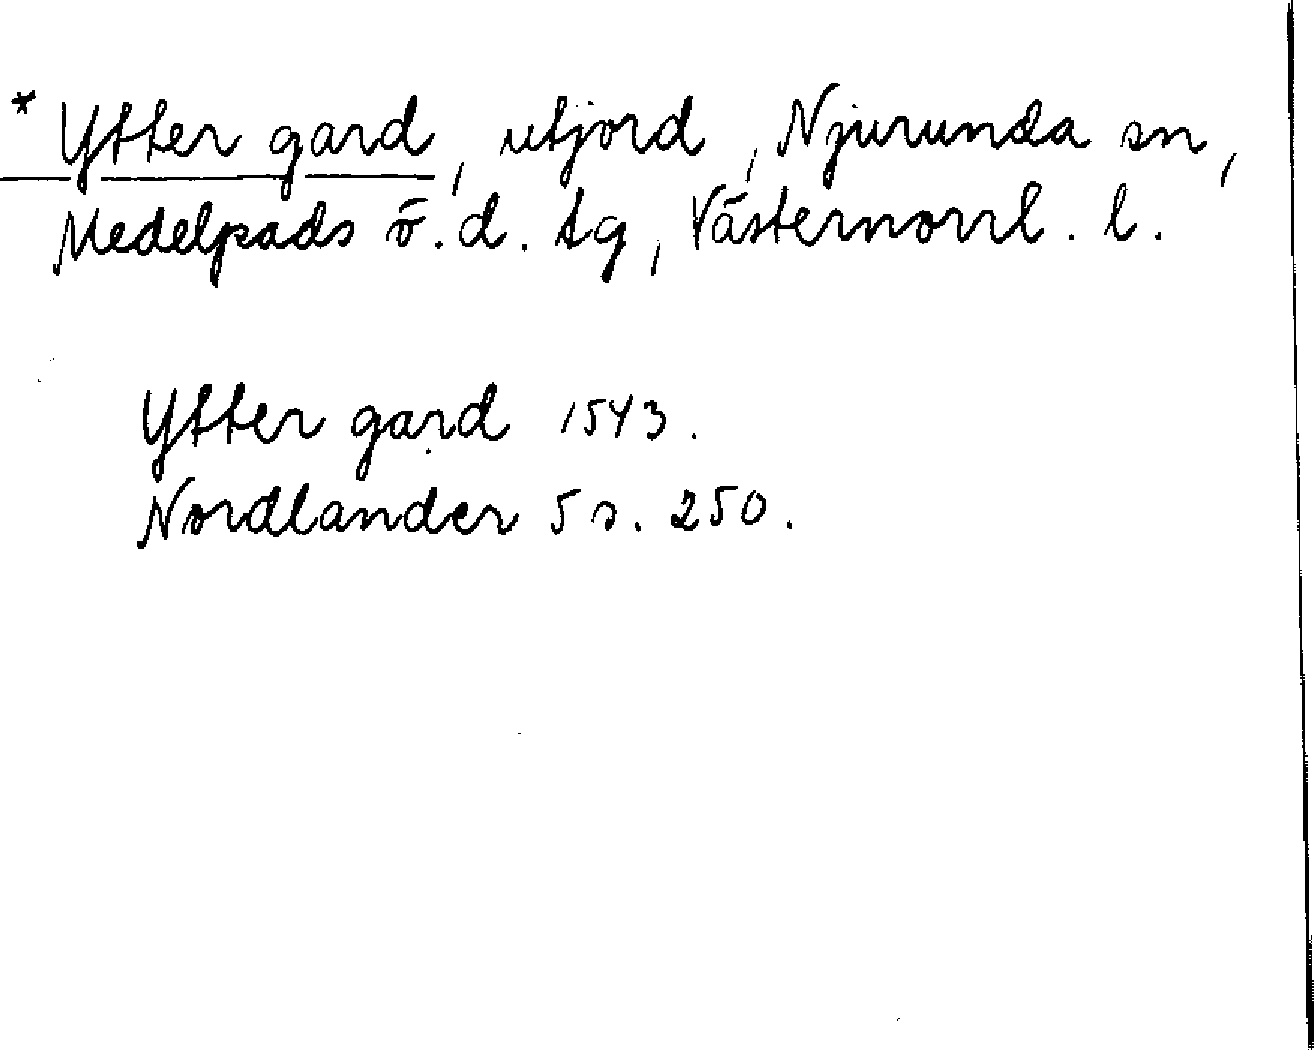 * Ytter gard, utjord, Njurunda sn,
Medelpads ö. d. tg, Västernorrl. l.
Ytter gard 1543.
Nordlander 5 s. 250.